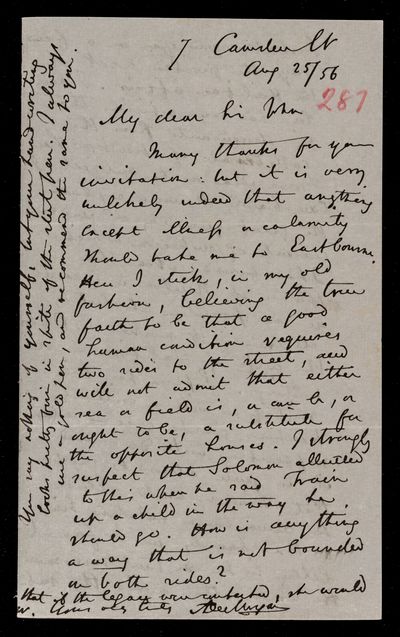 7 Camden St
Aug 25/56
287
My dear Sir John
Many thanks for your
invitation: but it is very
unlikely indeed that anything
except illness or calamity
should take me to Eastbourne.
Here I stick, in my old
fashion, believing the true
faith to be that a good
human condition requires
two sides to the street, and
will not admit that either
sea or field is, or can be, or
ought to be, a substitute for
the opposite houses. I strongly
suspect that Solomon alluded
to this when he said Train
up a child in the way he
should go. How is anything
a way that is not bounded
on both sides?
that if the legacy were contested, she would
Yours very truly ADeMorgan
You say nothing of yourself, but your handwriting
looks pretty firm in spite of the steel pen. I always
use a gold pen, and recommend the same to you.